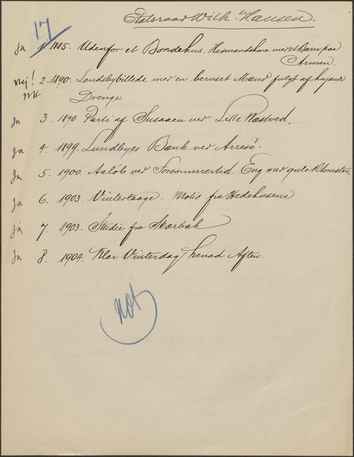 Etatsraad Wilh. Hansen.
17
ja 1. 1885. Udenfor et Bondehus,
nej! 2. 1890. Landsbybillede med en beruset Mand fulgt af
Drenge
ja 3. 1890 Parti af Susaaen ved Lille Næstved.
ja 4. 1899. Lundbyes Bænk ved Arresø.
ja 5. 1900. Aaløb ved Sommertid. Eng med gule Blomster
ja 6. 1903 Vintertaage. Motiv fra Hedehusene
ja 7. 1903. Studie fra Skarbak
ja 8. 1904. Klar Vinterdag henad Aften
not